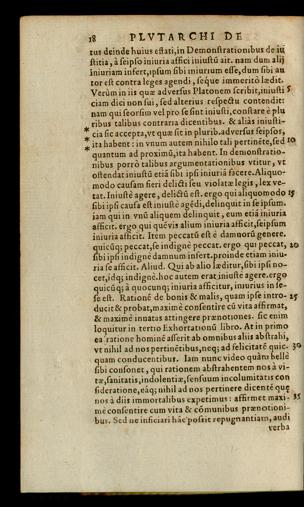 18 PLVTARCHI DE
tus deinde huius ęstati, in Demonstrationibus de iu
stitia, à seipso iniuria affici iniustũ ait. nam dum alij
iniuriam infert, ipsum sibi iniurium esse, dum sibi au
tor est contra leges agendi, seque immeritò lædit.
Verùm in iis quæ aduersus Platonem scribit, iniusti 5
ciam dici non sui, sed alterius respectu contendit:
nam qui seorsum vel pro se sint iniusti, constare è plu
ribus talibus contraria dicentibus. & aliàs iniusti-
* cia sic accepta, vt quæ sit in plurib. aduersus seipsos,
* ita habent: in vnum autem nihilo tali pertinẽte, sed 10
* quantum ad proximũ, ita habent. In demonstratio-
nibus porrò talibus argumentationibus vtitur, vt
ostendat iniustũ etiã sibi ipsi iniuriã facere. Aliquo-
modo causam fieri delicti seu violatę legis, lex ve-
tat. Iniustè agere, delictũ est. ergo qui aliquomodo 15
sibi ipsi causa est iniustè agẽdi, delinquit in seipsum.
iam qui in vnũ aliquem delinquit, eum etiã iniuria
afficit. ergo qui quẽuis alium iniuria afficit, seipsum
iniuria afficit. Item peccatũ est è damnorũ genere.
quicũq; peccat, se indignè peccat. ergo qui peccat, 20
sibi ipsi indignè damnum infert. proinde etiam iniu-
ria se afficit. Aliud. Qui ab alio læditur, sibi ipsi no-
cet, idq; indignè. hoc autem erat, iniustè agere. ergo
quicũq; à quocunq; iniuria afficitur, iniurius in se-
se est. Rationẽ de bonis & malis, quam ipse intro- 25
ducit & probat, maximè consentire cũ vita affirmat,
& maximè innatas attingere prænotiones. sic enim
loquitur in tertio Exhortationũ libro. At in primo
ea ratione hominẽ asserit ab omnibus aliis abstrahi,
vt nihil ad nos pertinẽtibus, neq; ad felicitatẽ quic- 30
quam conducentibus. Iam nunc video quàm bellè
sibi consonet, qui rationem abstrahentem nos à vi-
tæ, sanitatis, indolentiæ, sensuum incolumitatis con
sideratione, eàq; nihil ad nos pertinere dicente quę
nos à diis immortalibus expetimus: affirmet maxi- 35
mè consentire cum vita & cõmunibus prænotioni-
bus. Sed ne inficiari hãc possit repugnantiam, audi
verba